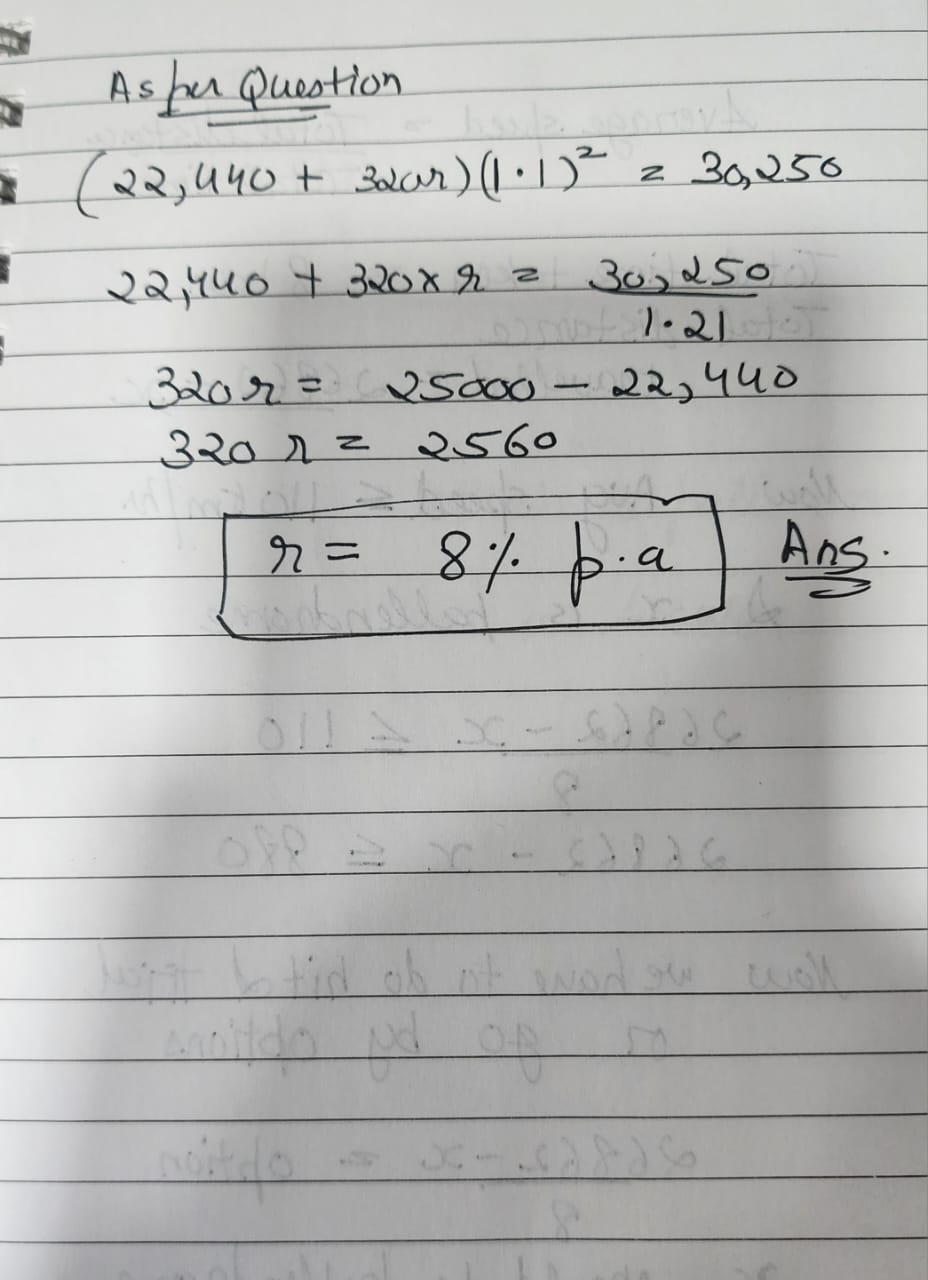 As per Question
(22,440 + 320r)(1.1)² = 30,250
22,440 + 320 x r = 30,250
1.21
320 r = 25000 - 22,440
320 r = 2560
r = 8% p.a Ans.